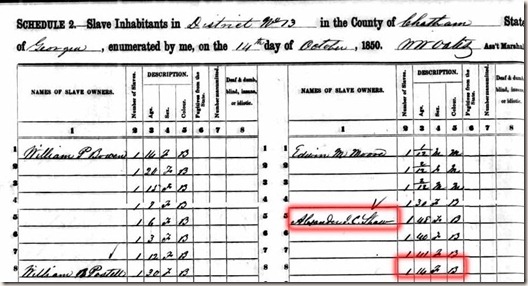 SCHEDULE 2. Slave Inhabitants in District No 13 in the County of Chatham State
of Georgia, enumerated by me, on the 14th day of October, 1850. Ass't Marshal
NAMES OF SLAVE OWNERS. Number of Slaves. DESCRIPTION. Age. Sex. Colour. Fugitives from the State. Number manumitted. Deaf & dumb, blind, insane, or idiotic.
NAMES OF SLAVE OWNERS. Number of Slaves. DESCRIPTION. Age. Sex. Colour. Fugitives from the State. Number manumitted. Deaf & dumb, blind, insane, or idiotic.
1 2 3 4 5 6 7 8 1 2 3 4 5 6 7 8
1 William P Bowen 1 16 F B 1 Edwin M Moore 1 1/12 M M
2 1 20 F B 2 1 2/12 M M
3 1 15 F B 3 1 2/12 M M
4 1 F B 4 1 30 F B
5 1 6 F B 5 Alexander J. C. Shaw 1 45 F B
6 1 3 F B 6 1 40 F B
7 1 12 F B 7 1 F B
8 William B Postell 1 30 F B 8 1 16 F B